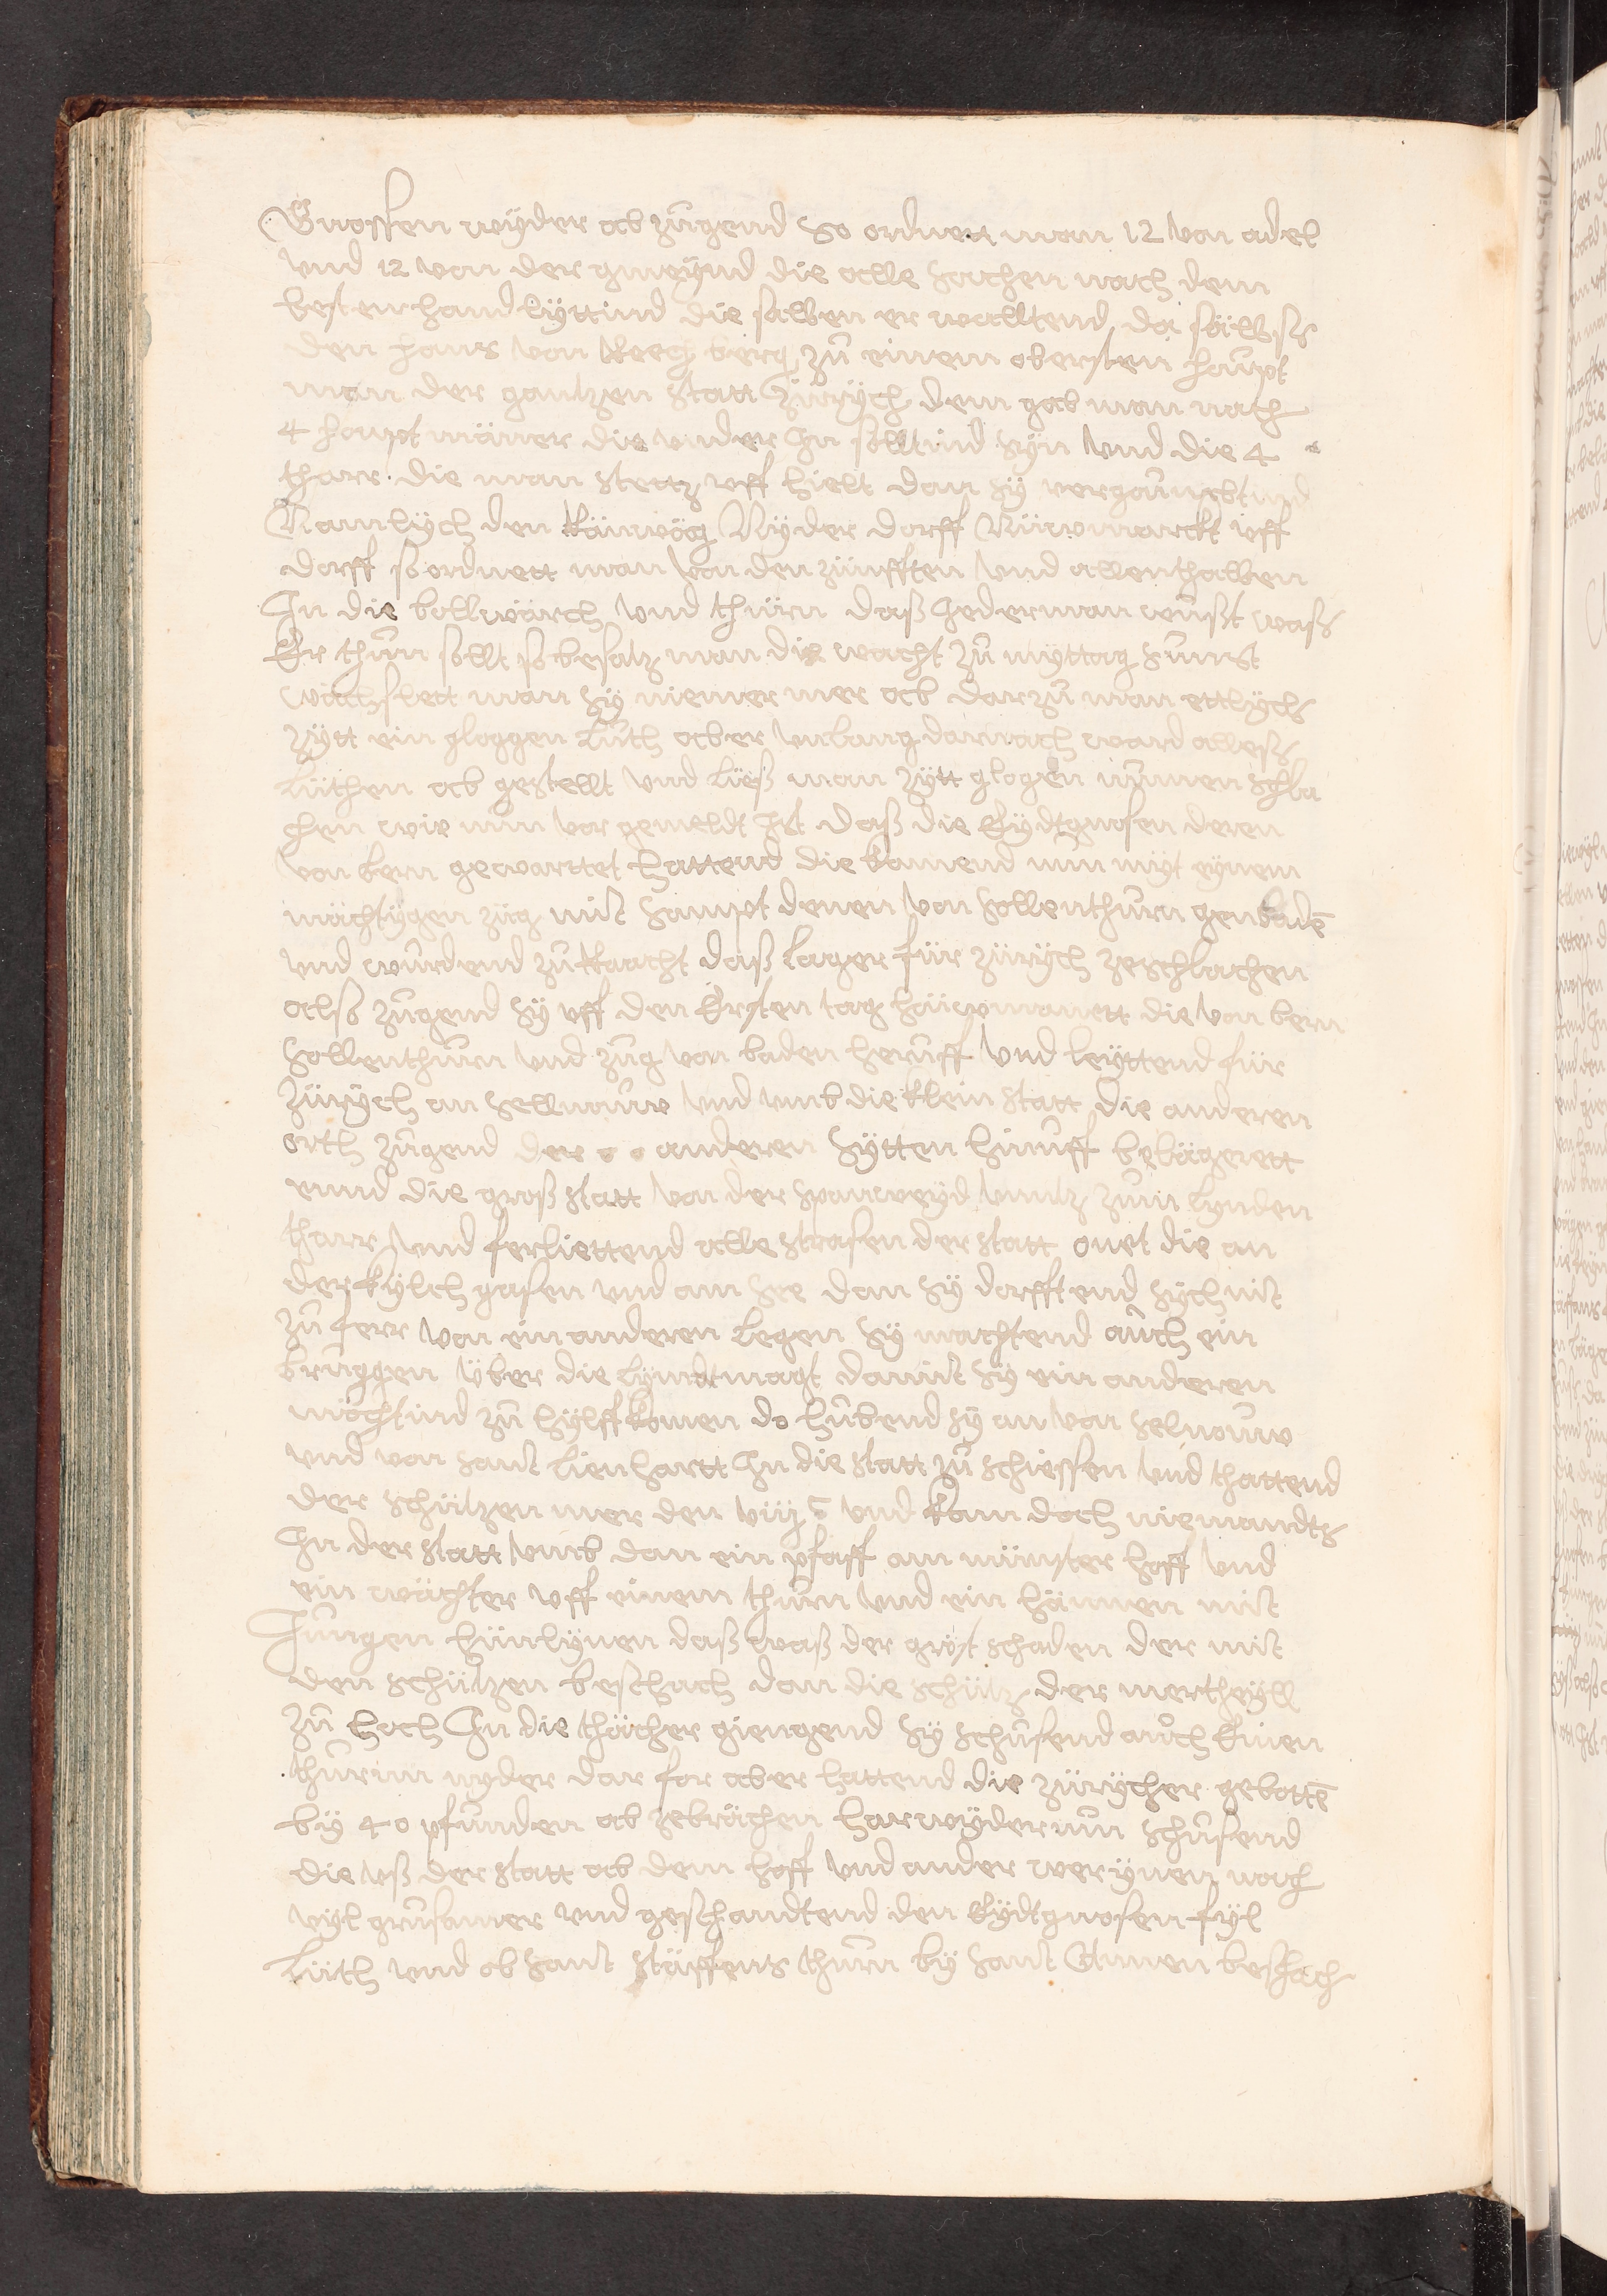 Gnossen wyder ab zugend so ordnett man 12 von adel
vnd 12 von der gmeynd die alle sachen nach dem
besten handlyttind die selben er walltend da sälbst
den hans von Rechberg zu einem obersten haupt
man der gantzen statt Zürych dem gab man nach
4 houpt männer die vnder Im sölltind syn vnd die 4
thorr die man stettz vff hielt dan sy
Namlych den Rännwög Nyder dorff Nüwmarckt vff
dorff so ordnett man von den zünfften vnd allenthalben
In die bollwärch vnd thürn daß Jederman wüst waß
Er thun söllt so besatz man die wacht zu myttag sunst
man sy niemer mer ab darzu man ettlych
zytt ein gloggen luth aber vnlang darnach ward alleß
lüthen ab gestellt vnd ließ man zytt glogen nümen schla
chen wie nun vor gemeldt Ist daß die Eydtgnosen deren
von bern gewarttet hattend die kamend nun myt eynem
mächtygen züg mit sampt denen von sollenthurn gen baden
vnd wurdend zu Raacht daß lager für zürych zeschlachen
alß zugend sy vff den Ersten tag häüwmanett die von bern
sollenthurn vnd zug von baden heruff vnd leyttend für
zürych an sellnauw vnd vmb die klein statt die anderen
orth zugend der anderen sytten hinuff belägerett
vnnd die groß statt von der spanweyd vnntz zum lynden
tharr vnd ferliettend alle strasen der statt onet die an
der kylch gasen vnd am see dan sy dorfftend sych nit
zu ferr von ein anderen legen sy machtend auch ein
bruggen über die lyndtmagt damit sy ein anderen
möchtind zu hylff komen do hubend sy an von selnouw
vnd von sant lienhartt In die statt zu schiessen vnd thattend
der schützen mer den viij c vnd kam doch niemandtz
In der statt vmb dan ein pfaff am münster hoff vnd
ein wächter vff einem thurn vnd ein hännen mit
Jungen hünlynen daß waß der gröst schaden der mit
den schützen beschach dan die schütz der mertheyll
zu hoch In die thächer giengend sy schusend auch kinen
thurnn nyder dar for aber hattend die zürycher gebotten
by 40 pfunden ab zebrächen harwyder nun schusend
die vß der statt ab dem hoff vnd ander werynen noch
vyl grusamer vnd geschandtend den Eydtgnosen fyl
lüth vnd ob sant stäffens thurn by sant Annen beschach